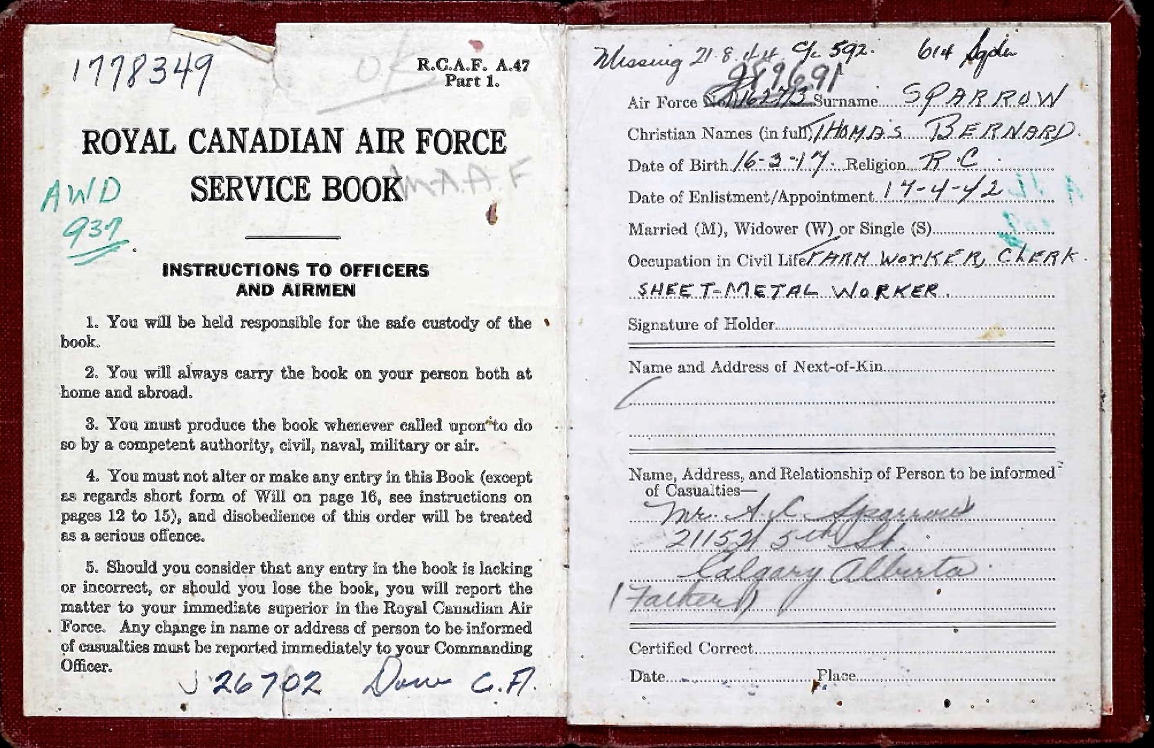 1778349
OK
R.C.A.F. A.47
Part 1.
ROYAL CANADIAN AIR FORCE
SERVICE BOOK
AWD
937
INSTRUCTIONS TO OFFICERS
AND AIRMEN
1. You will be held responsible for the safe custody of the
book.
2. You will always carry the book on your person both at
home and abroad.
3. You must produce the book whenever called upon to do
so by a competent authority, civil, naval, military or air.
4. You must not alter or make any entry in this Book (except
as regards short form of Will on page 16, see instructions on
pages 12 to 15), and disobedience of this order will be treated
as a serious offence.
5. Should you consider that any entry in the book is lacking
or incorrect, or should you lose the book, you will report the
matter to your immediate superior in the Royal Canadian Air
Force. Any change in name or address of person to be informed
of casualties must be reported immediately to your Commanding
Officer.
J 26702
Missing 21.8.44 592. 614
Air Force No. Surname SPARROW
Christian Names (in full) THOMAS BERNARD.
Date of Birth 16-3-17. Religion R.C.
Date of Enlistment/Appointment 17-4-42
Married (M), Widower (W) or Single (S)
Occupation in Civil Life FARM WORKER, CLERK.
SHEET-METAL WORKER.
Signature of Holder
Name and Address of Next-of-Kin
Name, Address, and Relationship of Person to be informed
of Casualties—
Mr. A. C. Sparrow
5th St.
Calgary Alberta
(Father)
Certified Correct
Date Place